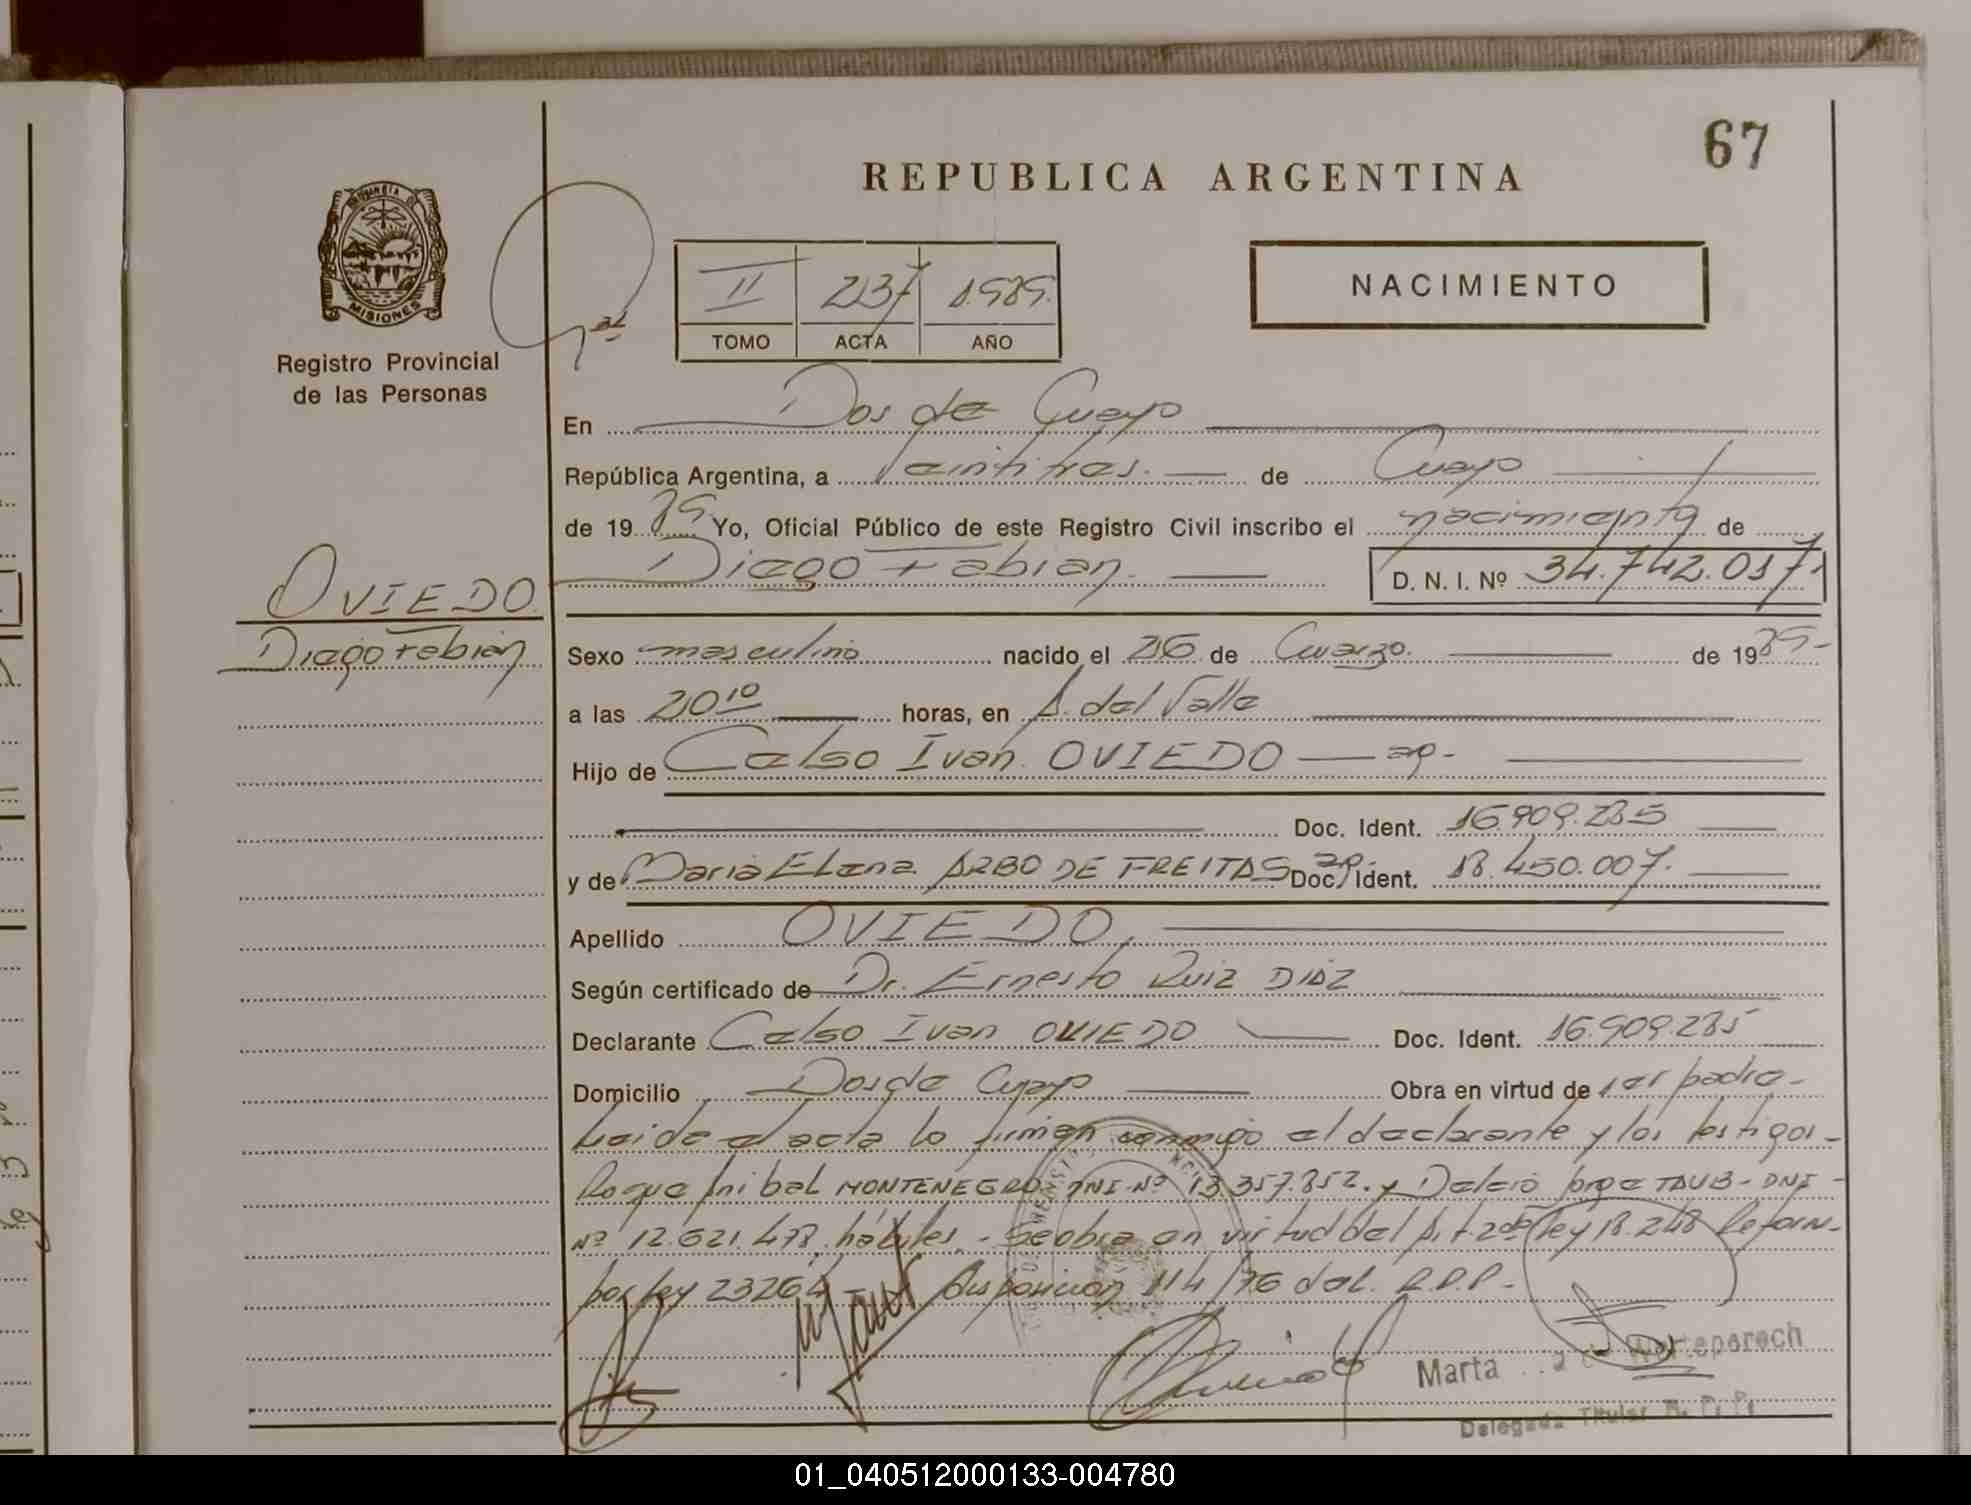 67
REPUBLICA ARGENTINA
PROVINCIA
MISIONES
Registro Provincial
de las Personas
II 237 1.989.
TOMO ACTA AÑO
NACIMIENTO
En Dos de Mayo
República Argentina, a Veintitres. de Mayo
de 1989. Yo, Oficial Público de este Registro Civil inscribo el nacimiento de
Diego Fabian. D. N. I. Nº 34.742.017.
OVIEDO.
Diego Fabian
Sexo masculino nacido el 26 de Marzo. de 1989-
a las 20 10 horas, en A. del Valle
Hijo de Celso Ivan. OVIEDO — ap.-
Doc. Ident. 16.909.285
y de Maria Elena ARBO DE FREITAS ap. Doc. Ident. 18.450.007.
Apellido OVIEDO,
Según certificado de Dr. Ernesto Ruiz DIAZ
Declarante Celso Ivan OVIEDO Doc. Ident. 16.909.285
Domicilio Dos de Mayo Obra en virtud de ser padre.-
Leida el acta la firman conmigo el declarante y los testigos-
Roque Anibal MONTENEGRO- DNI-Nº 13.357.852. y Delcio Jorge TAUB- DNI-
Nº 12.621.478, hábiles.- Se obra en virtud del Art. 2do ley 18.248 Reform-
por ley 23264 disposicion 114/76 del. R.P.P.-
Marta
Delegada Titular R. P. P.
01_040512000133-004780